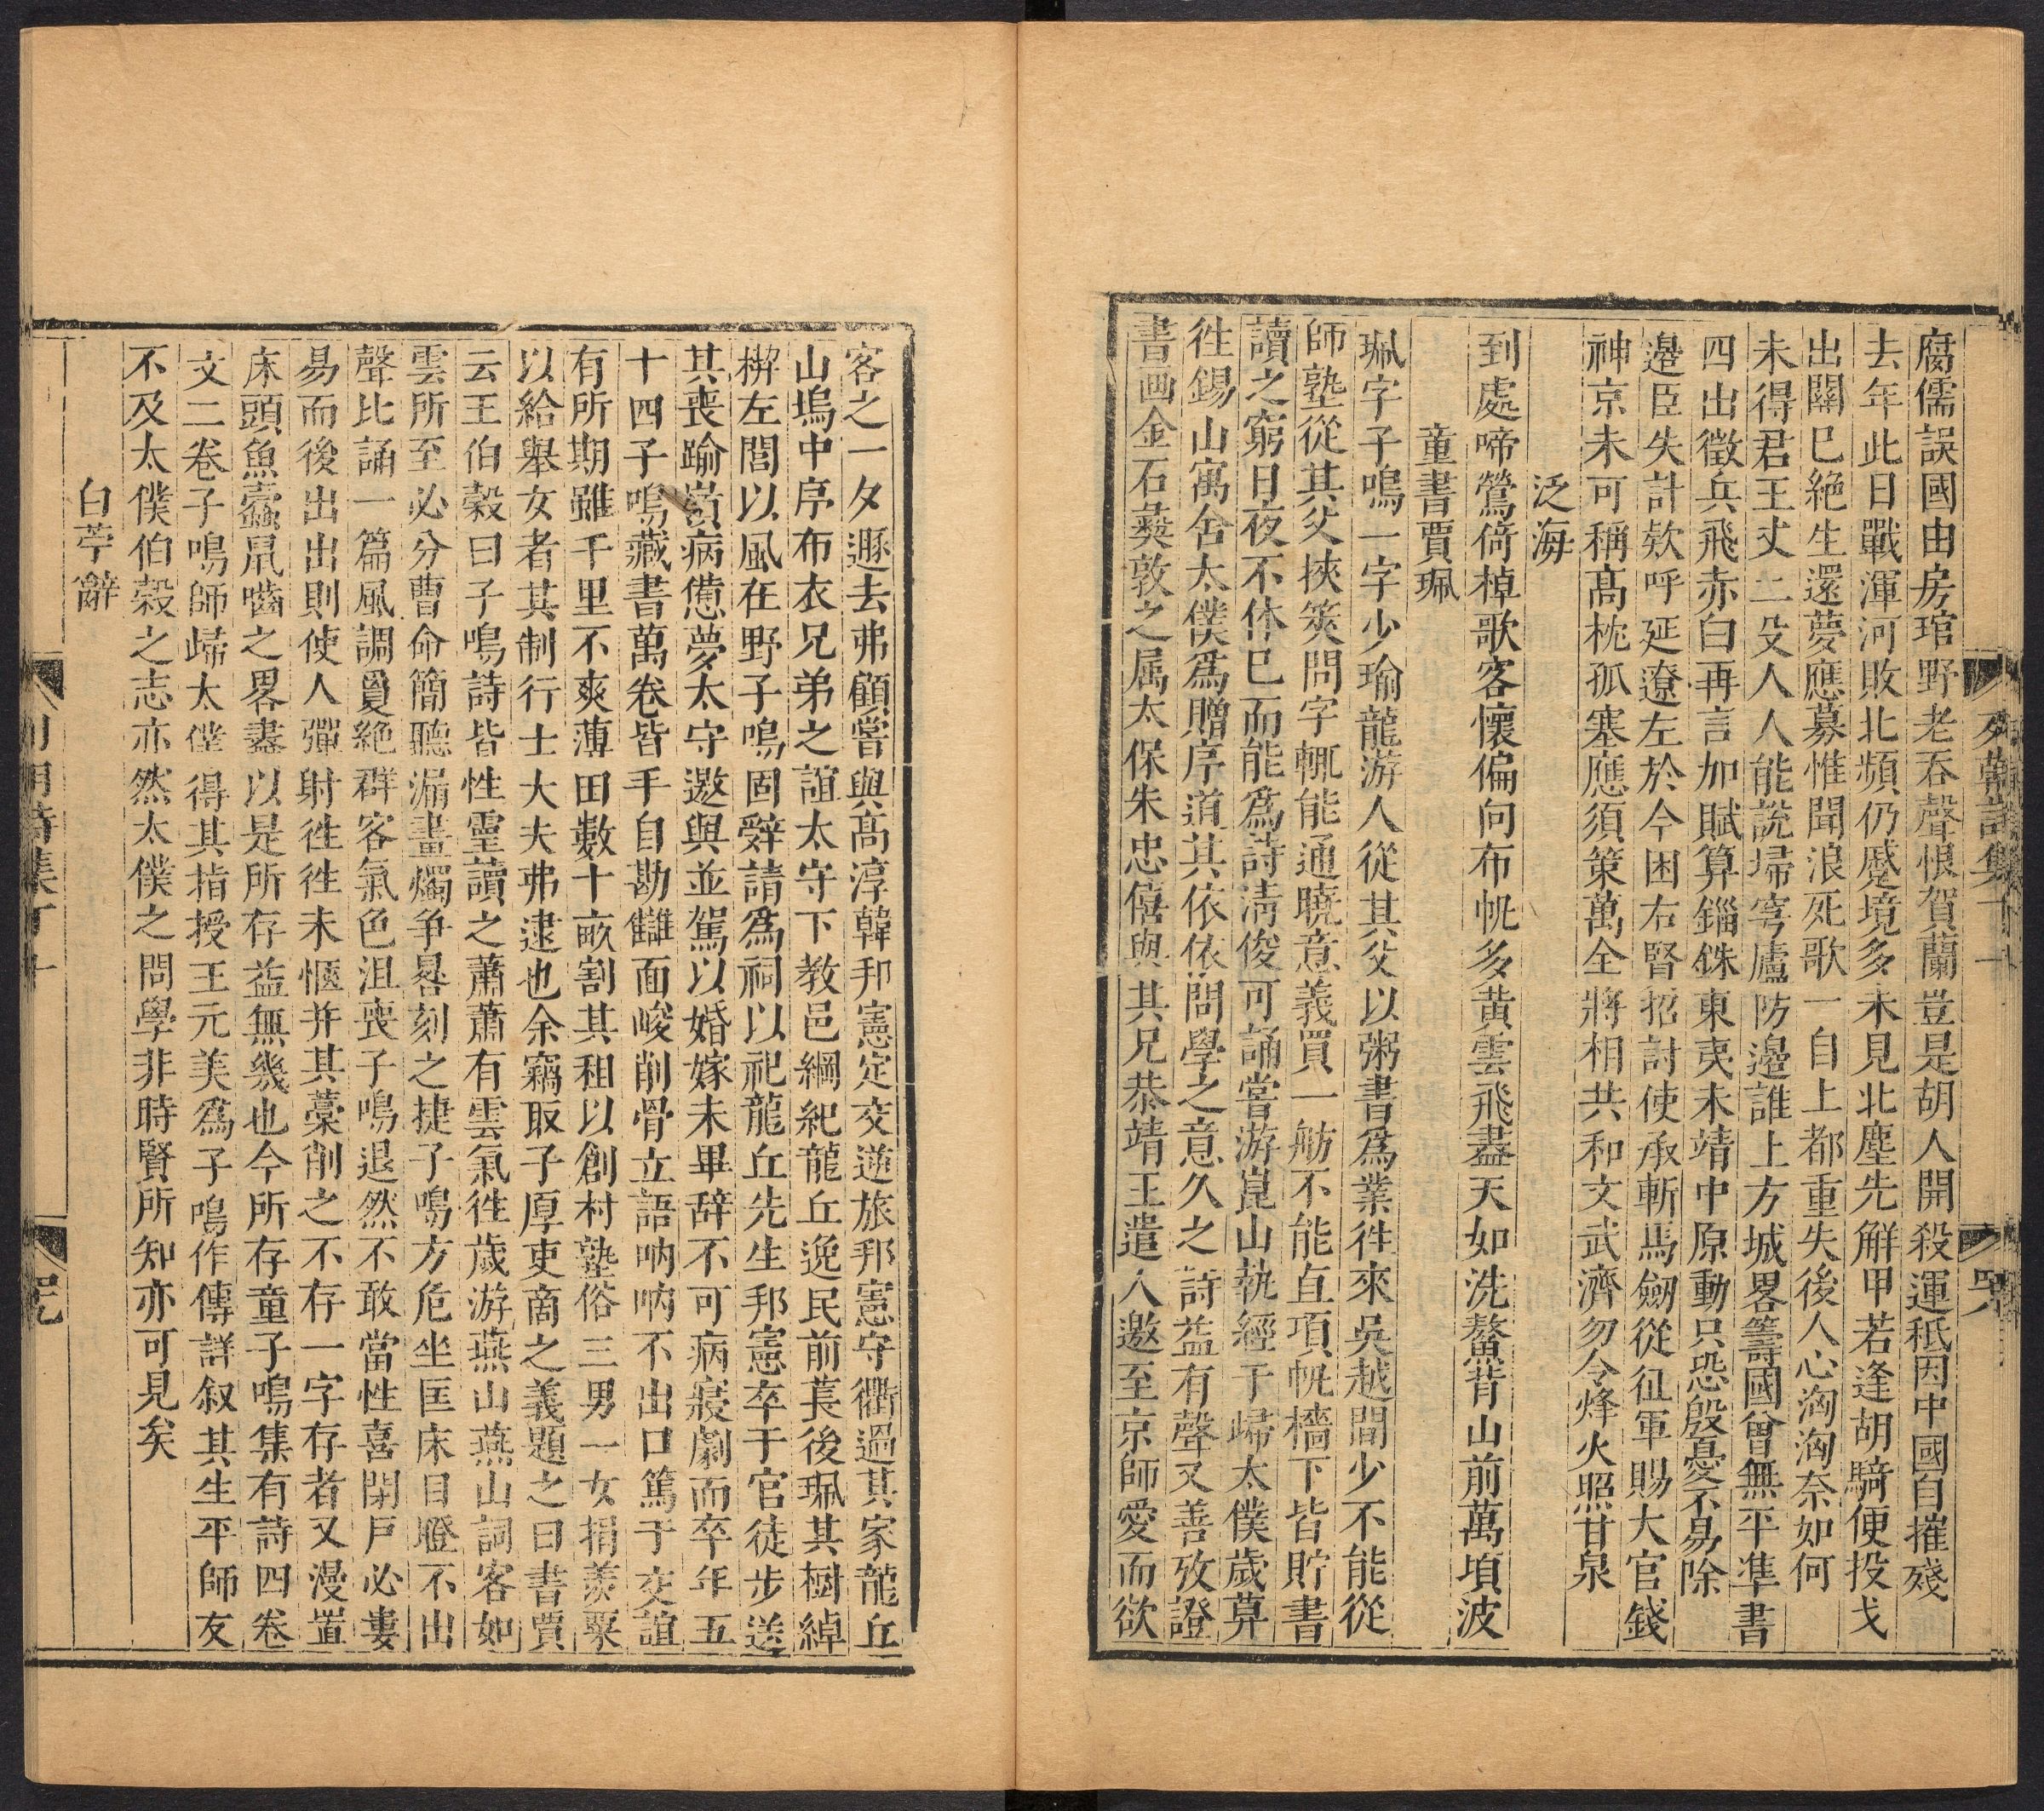 列朝詩集丁十
罕八
腐儒誤國由房琯野老吞聲恨賀蘭豈是胡人開殺運秖因中國自摧殘
去年此日戰渾河敗北頻仍蹙境多未見北塵先解甲若逢胡騎便投戈
出關巳絶生還夢應募惟聞浪死歌一自上都重失後人心洶洶奈如何
未得君王丈二殳人人能說埽穹廬防邊誰上方城畧籌國曾無平準書
四出徵兵飛赤白再言加賦算錙銖東夷未靖中原動只恐殷憂不易除
邊臣失計欸呼延遼左於今困右賢招討使承斬馬劒從征軍賜大官錢
神京未可稱髙枕孤塞應須策萬全將相共和文武濟勿令烽火照甘泉
泛海
到處啼鶯倚棹歌客懷偏向布帆多黄雲飛盡天如洗鰲背山前萬頃波
童書賈珮
珮字子鳴一字少瑜龍游人從其父以粥書爲業徃來吳越間少不能從
師塾從其父挾筴問字輒能通曉意義買一舫不能直項帆檣下皆貯書
讀之窮日夜不休巳而能爲詩淸俊可誦嘗游崑山執經于歸太僕歲莫
徃錫山寓舍太僕爲贈序道其依依問學之意久之詩益有聲又善攷證
書画金石彜敦之属太保朱忠僖與其兄恭靖王遣人邀至京師愛而欲
客之一夕遯去弗顧嘗與髙淳韓邦憲定交逆旅邦憲守衢過其家龍丘
山塢中序布衣兄弟之誼太守下教邑綱紀龍丘逸民前萇後珮其樹綽
楔左閭以風在野子鳴固辤請爲祠以祀龍丘先生邦憲卒于官徒步送
其喪踰嶺病憊夢太守邀與並駕以婚嫁未畢辞不可病寢劇而卒年五
十四子鳴藏書萬卷皆手自勘讎面峻削骨立語呐呐不出口篤于交誼
有所期雖千里不爽薄田數十畝割其租以創村塾俗三男一女捐羨粟
以給舉女者其制行士大夫弗逮也余竊取子厚吏商之義題之曰書賈
云王伯穀曰子鳴詩皆性靈讀之蕭蕭有雲氣徃歲游燕山燕山詞客如
雲所至必分曹命簡聽漏畫燭爭晷刻之捷子鳴方危坐匡床目瞪不出
聲比誦一篇風調夐絶群客氣色沮喪子鳴退然不敢當性喜閉戸必婁
易而後出出則使人彈射徃徃未愜并其藁削之不存一字存者又漫置
床頭魚蠹鼠嚙之畧盡以是所存益無幾也今所存童子鳴集有詩四卷
文二卷子鳴師歸太僕得其指授王元美爲子鳴作傳詳叙其生平師友
不及太僕伯榖之志亦然太僕之問學非時賢所知亦可見矣
白苧辭
列朝詩集丁十